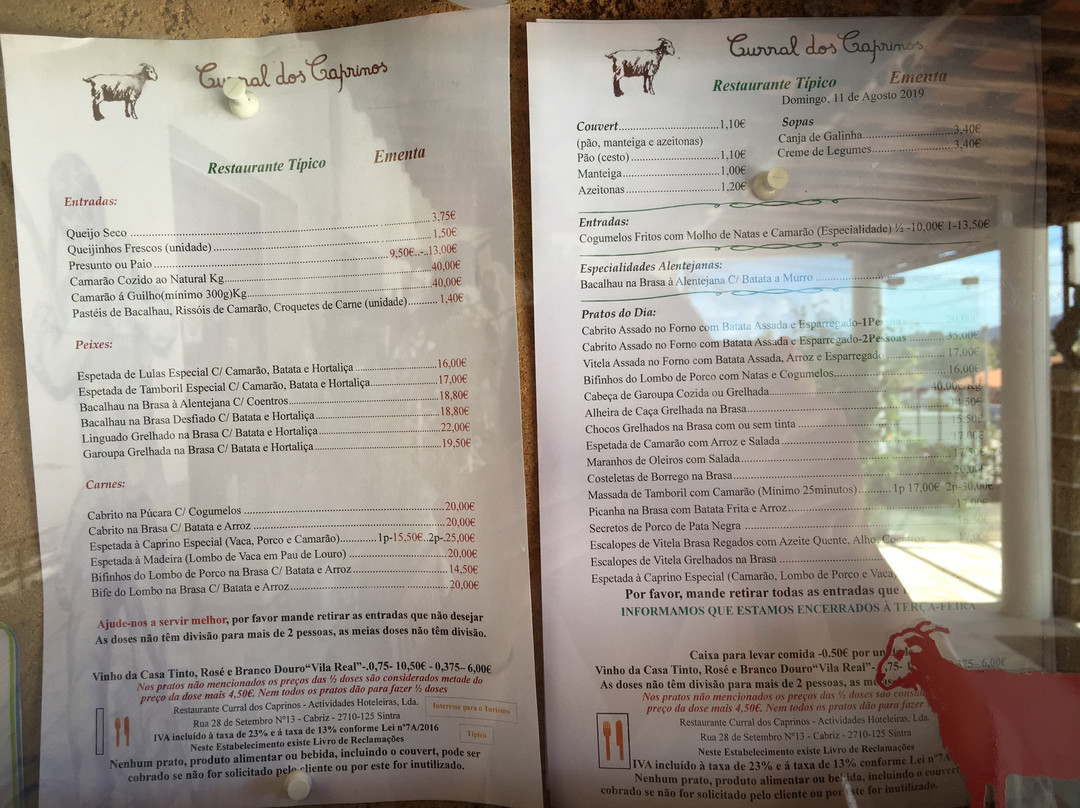 Curral dos Caprinos
Restaurante Típico Ementa
Entradas:
Queijo Seco 3,75€
Queijinhos Frescos (unidade) 1,50€
Presunto ou Paio 9,50€..-..13,00€
Camarão Cozido ao Natural Kg 40,00€
Camarão á Guilho(mínimo 300g)Kg 40,00€
Pastéis de Bacalhau, Rissóis de Camarão, Croquetes de Carne (unidade) 1,40€
Peixes:
Espetada de Lulas Especial C/ Camarão, Batata e Hortaliça 16,00€
Espetada de Tamboril Especial C/ Camarão, Batata e Hortaliça 17,00€
Bacalhau na Brasa à Alentejana C/ Coentros 18,80€
Bacalhau na Brasa Desfiado C/ Batata e Hortaliça 18,80€
Linguado Grelhado na Brasa C/ Batata e Hortaliça 22,00€
Garoupa Grelhada na Brasa C/ Batata e Hortaliça 19,50€
Carnes:
Cabrito na Púcara C/ Cogumelos 20,00€
Cabrito na Brasa C/ Batata e Arroz 20,00€
Espetada à Caprino Especial (Vaca, Porco e Camarão) 1p-15,50€..2p-.25,00€
Espetada à Madeira (Lombo de Vaca em Pau de Louro) 20,00€
Bifinhos do Lombo de Porco na Brasa C/ Batata e Arroz 14,50€
Bife do Lombo na Brasa C/ Batata e Arroz 20,00€
Ajude-nos a servir melhor, por favor mande retirar as entradas que não desejar
As doses não têm divisão para mais de 2 pessoas, as meias doses não têm divisão.
Vinho da Casa Tinto, Rosé e Branco Douro“Vila Real”-.0,75- 10,50€ - 0,375– 6,00€
Nos pratos não mencionados os preços das ½ doses são considerados metade do
preço da dose mais 4,50€. Nem todos os pratos dão para fazer ½ doses
Restaurante Curral dos Caprinos - Actividades Hoteleiras, Lda.
Interesse para o Turismo
Rua 28 de Setembro Nº13 - Cabriz - 2710-125 Sintra
Típico
IVA incluído à taxa de 23% e á taxa de 13% conforme Lei nº7A/2016
Neste Estabelecimento existe Livro de Reclamações
Nenhum prato, produto alimentar ou bebida, incluindo o couvert, pode ser
cobrado se não for solicitado pelo cliente ou por este for inutilizado.
Curral dos Caprinos
Restaurante Típico Ementa
Domingo, 11 de Agosto 2019
Couvert 1,10€
(pão, manteiga e azeitonas)
Pão (cesto) 1,10€
Manteiga 1,00€
Azeitonas 1,20€
Sopas
Canja de Galinha 3,40€
Creme de Legumes 3,40€
Entradas:
Cogumelos Fritos com Molho de Natas e Camarão (Especialidade) ½ -10,00€ 1-13,50€
Especialidades Alentejanas:
Bacalhau na Brasa à Alentejana C/ Batata a Murro
Pratos do Dia:
Cabrito Assado no Forno com Batata Assada e Esparregado-1Pessoa 20,00€
Cabrito Assado no Forno com Batata Assada e Esparregado-2Pessoas 35,00€
Vitela Assada no Forno com Batata Assada, Arroz e Esparregado 17,00€
Bifinhos do Lombo de Porco com Natas e Cogumelos 16,00€
Cabeça de Garoupa Cozida ou Grelhada 40,00€ Kg
Alheira de Caça Grelhada na Brasa 14,50€
Chocos Grelhados na Brasa com ou sem tinta 15,50€
Espetada de Camarão com Arroz e Salada 17,00€
Maranhos de Oleiros com Salada
Costeletas de Borrego na Brasa 20,00€
Massada de Tamboril com Camarão (Minimo 25minutos) 1p 17,00€ 2p-30,00€
Picanha na Brasa com Batata Frita e Arroz
Secretos de Porco de Pata Negra
Escalopes de Vitela Brasa Regados com Azeite Quente, Alho, Coentros
Escalopes de Vitela Grelhados na Brasa
Espetada à Caprino Especial (Camarão, Lombo de Porco e Vaca
Por favor, mande retirar todas as entradas que
INFORMAMOS QUE ESTAMOS ENCERRADOS À TERÇA-FEIRA
Caixa para levar comida -0.50€ por
Vinho da Casa Tinto, Rosé e Branco Douro“Vila Real”- .0,75- 0,375– 6,00€
As doses não têm divisão para mais de 2 pessoas, as
Nos pratos não mencionados os preços das ½ doses são
preço da dose mais 4,50€. Nem todos os pratos dão para fazer
Restaurante Curral dos Caprinos - Actividades Hoteleiras, Lda.
Rua 28 de Setembro Nº13 - Cabriz - 2710-125 Sintra
Neste Estabelecimento existe Livro de Reclamações
IVA incluído à taxa de 23% e á taxa de 13% conforme Lei nº7A
Nenhum prato, produto alimentar ou bebida, incluindo o couvert
cobrado se não for solicitado pelo cliente ou por este for inutilizado.